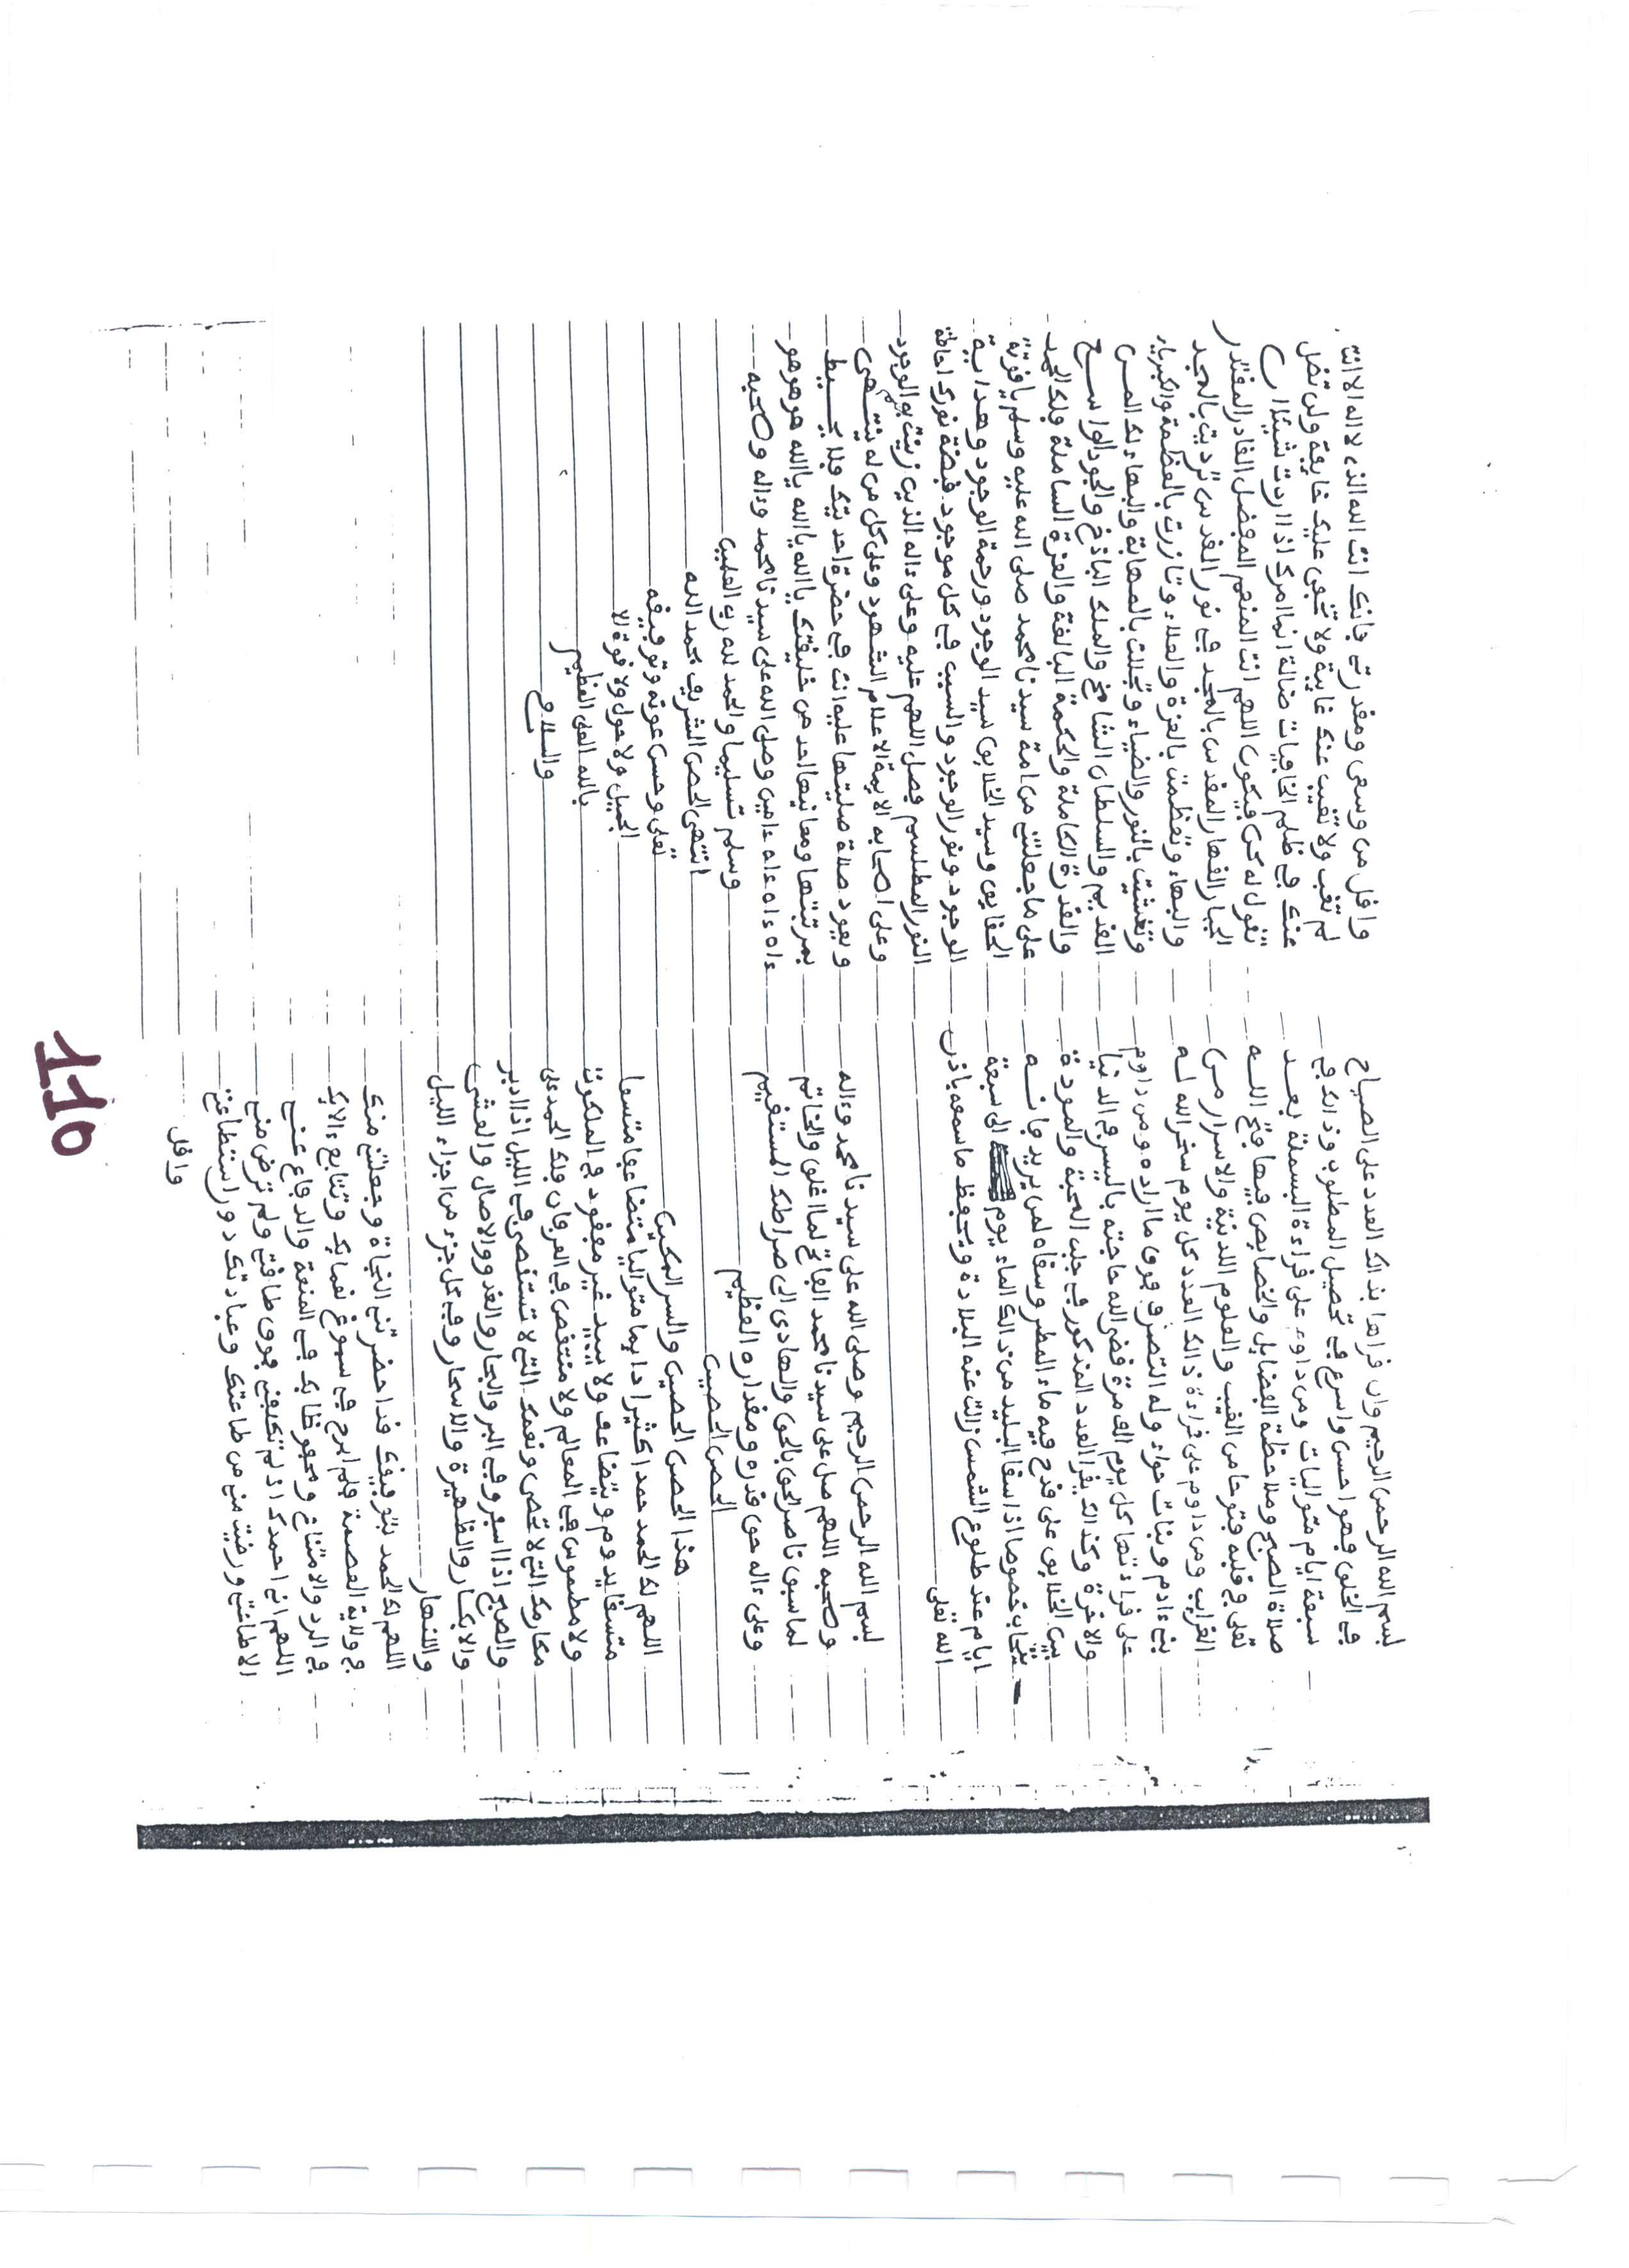 بسم الله الرحمن الرحيم وان قراها بذالك العدد على الصباح
في الخلق فهو احسن واسرع في تحصيل المطلوب وذالك في
سبعة ايام متواليات ومن داوم على قراءة البسملة بعد
صلاة الصبح وملاحظة الفضايل والخصايص فيها فتح الله
تعلى في قلبه فتوحا من الغيب والعلوم اللدنية والاسرار من
الغرايب ومن داوم على قراءة ذالك العدد كل يوم سخر الله له
بني ءادم وبنات حواء وله التصرف فوق ما اراده ومن داوم
على قراءتها كل يوم الف مرة قضى الله حاجته باليسر في الدنيا
والاخرة وكذالك يقرا العدد المذكور في جلب المحبة والمودة
بين الخلايق على قدح فيه ماء المطر وسقاه لمن يريد فانه
يتحاب خصوصا اذا سقا البليد من ذالك الماء يوم الى سبعة
ايام عند طلوع الشمس زالت عنه البلادة ويحفظ ما سمعه باذن
الله تعلى
بسم الله الرحمن الرحيم وصلى الله على سيدنا محمد وءاله
وصحبه اللهم صل على سيدنا محمد الفاتح لما اغلق والخاتم
لما سبق ناصر الحق بالحق والهادى الى صراطك المستقيم
وعلى ءاله حق قدره ومقداره العظيم
الحصن الحصين
هذا الحصن الحصين والسر المكين
اللهم لك الحمد حمدا كثيرا دايما متواليا متضاعفا متسعا
متسقا يدوم ويتضاعف ولا يبيد غير مفقود في الملكوت
ولا مطموس في المعالم ولا منتقص في العرفان فلك الحمد على
مكارمك التي لا تحصى ونعمك التي لا تستقصى في الليل اذا ادبر
والصبح اذا اسفر وفي البر والبحار والغدو والاصال والعشى
والابكار والظهيرة والاسحار وفي كل جزء من اجزاء الليل
والنهار
اللهم لك الحمد بتوفيقك قد احضرتني النجاة وجعلتني منك
في ولاية العصمة فلم ابرح في سبوغ نعمايك وتتابع ءالايك
في الرد والامتناع ومحفوظا بك في المنعة والدفاع عني
اللهم اني احمدك اذ لم تكلفني فوق طاقتي ولم ترض مني
الا طاعتي ورضيت مني من طاعتك وعبادتك دون استطاعتي
واقل
واقل من وسعي ومقدرتي فانك انت الله الذي لا اله الا انت
لم تغب ولا تغيب عنك غايبة ولا تخفى عليك خافية ولن تضل
عنك في ظلم الخافيات ضالة انما امرك اذا اردت شيئا ان
تقول له كن فيكون اللهم انت المنعم المفضل القادر المقتدر
الجبار القهار المقدس بالمجد في نور القدس ترديت بالمجد
والبهاء وتعظمت بالعزة والعلاء وتازرت بالعظمة والكبرياء
وتغشيت بالنور والضياء وتجللت بالمهابة والبهاء لك المن
القديم والسلطان الشامخ والملك الباذخ والجود الواسع
والقدرة الكاملة والحكمة البالغة والعزة الشاملة فلك الحمد
على ما جعلتني من امة سيدنا محمد صلى الله عليه وسلم ياقوتة
الحقايق وسيد الخلايق سيد الوجود ورحمة الوجود وهداية
الوجود ونور الوجود والسبب في كل موجود قبضة نورك احاطة
النور المطلسم فصل اللهم عليه وعلى ءاله الذين زينت بهم الوجود
وعلى اصحابه الايمة الاعلام الشهود وعلى كل من له ينتهى
ويعود صلاة صليتها عليه انت في حضرة احديتك فلا يحيط
بمرتبتها ومعانيها احد من خليقتك يا الله يا الله يا الله هو هو هو
ءاه ءاه ءاه ءامين وصلى الله على سيدنا محمد وءاله وصحبه
وسلم تسليما والحمد لله رب العلمين
انتهى الحصن الشريف بحمد الله
تعلى وحسن عونه وتوفيقه
الجميل ولا حول ولا قوة الا
بالله العلى العظيم
والسلام
110